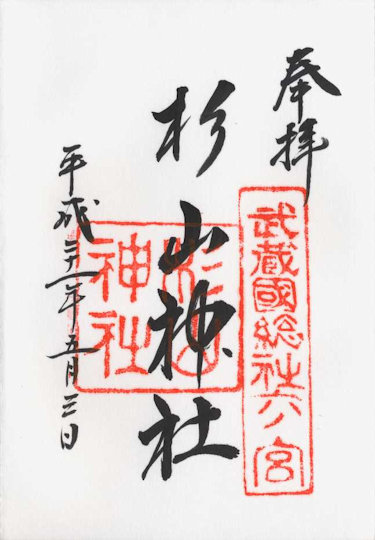 奉拝
武蔵國総社六宮
杉山神社
杉山神社
平成二十一年五月三日